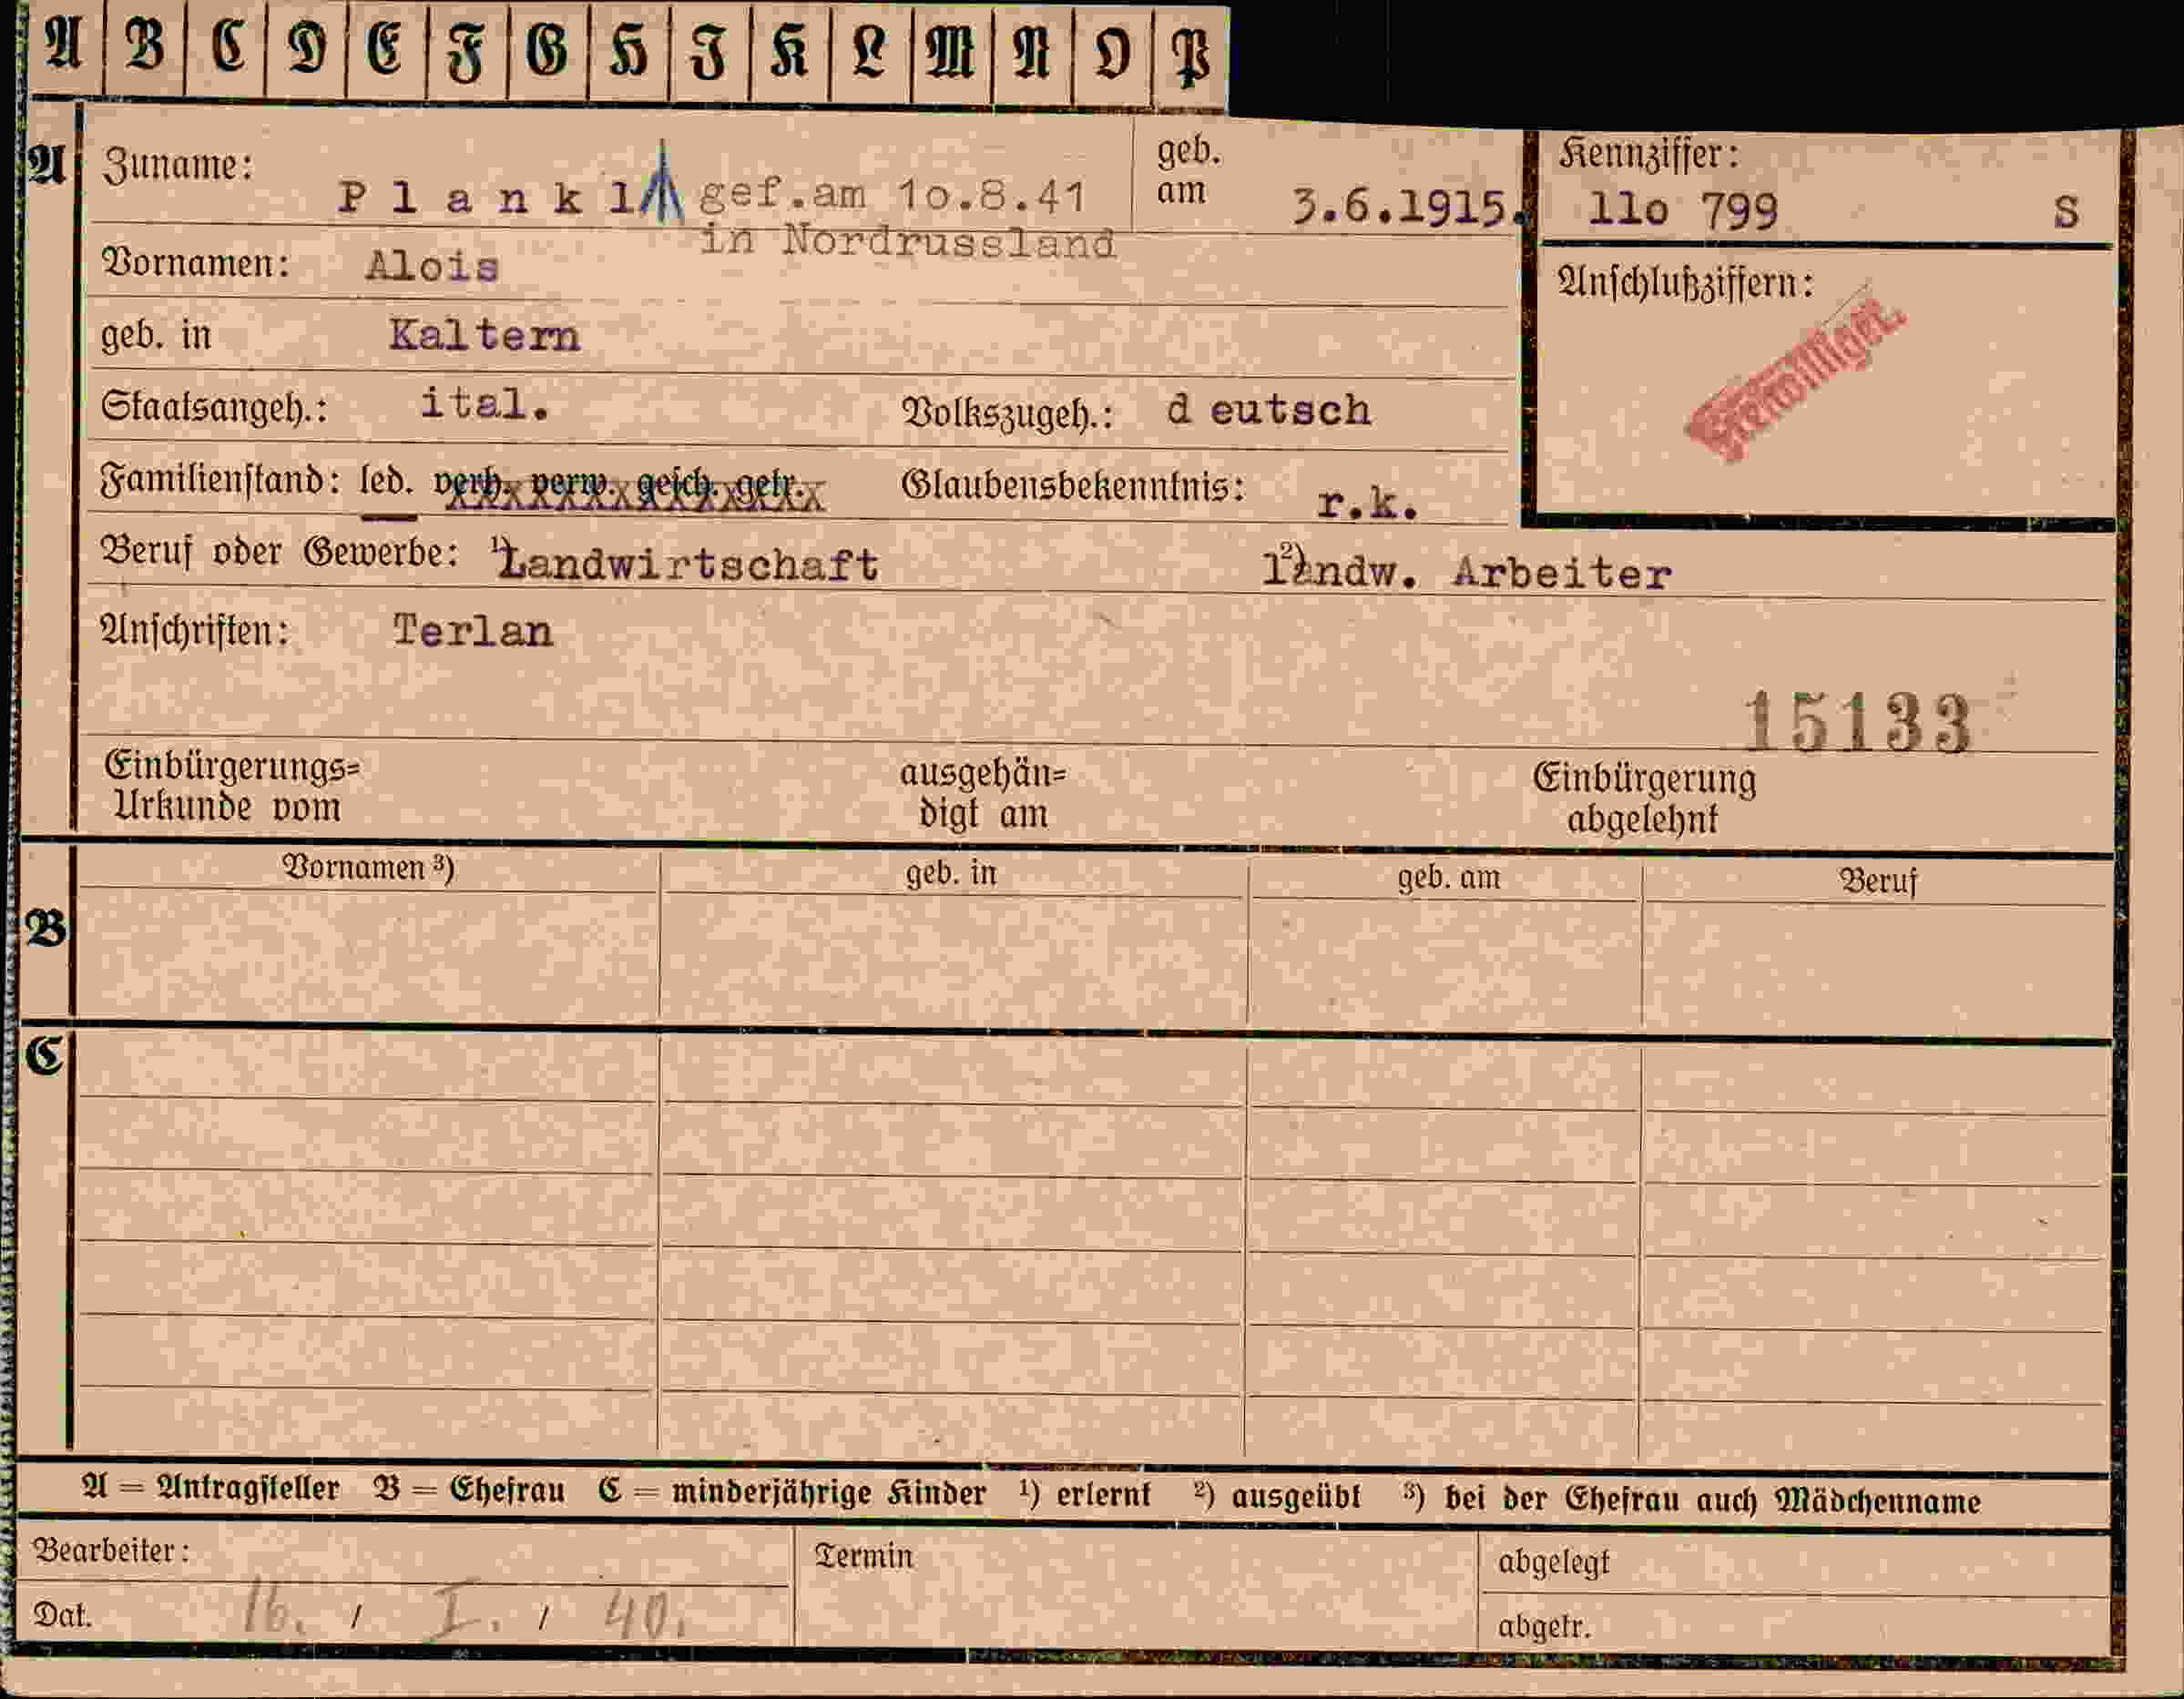 A B C D E F G H J K L M N O P
A Zuname: Plankl gef.am 1o.8.41 geb. am 3.6.1915. Kennziffer: llo 799 S
in Nordrussland
Vornamen: Alois Anschlußziffern:
Freiwilliger.
geb. in Kaltern
Staatsangeh.: ital. Volkszugeh.: d eutsch
Familienstand: led. verh. verw. gesch. getr. Glaubensbekenntnis: r.k.
Beruf oder Gewerbe: 1) Landwirtschaft 2) landw. Arbeiter
Anschriften: Terlan
15133
Einbürgerungs= ausgehän= Einbürgerung
Urkunde vom digt am abgelehnt
Vornamen ³) geb. in geb. am Beruf
B
C
A = Antragsteller B = Ehefrau C = minderjährige Kinder ¹) erlernt ²) ausgeübt ³) bei der Ehefrau auch Mädchenname
Bearbeiter: Termin abgelegt
Dat. 16. / I. / 40. abgetr.